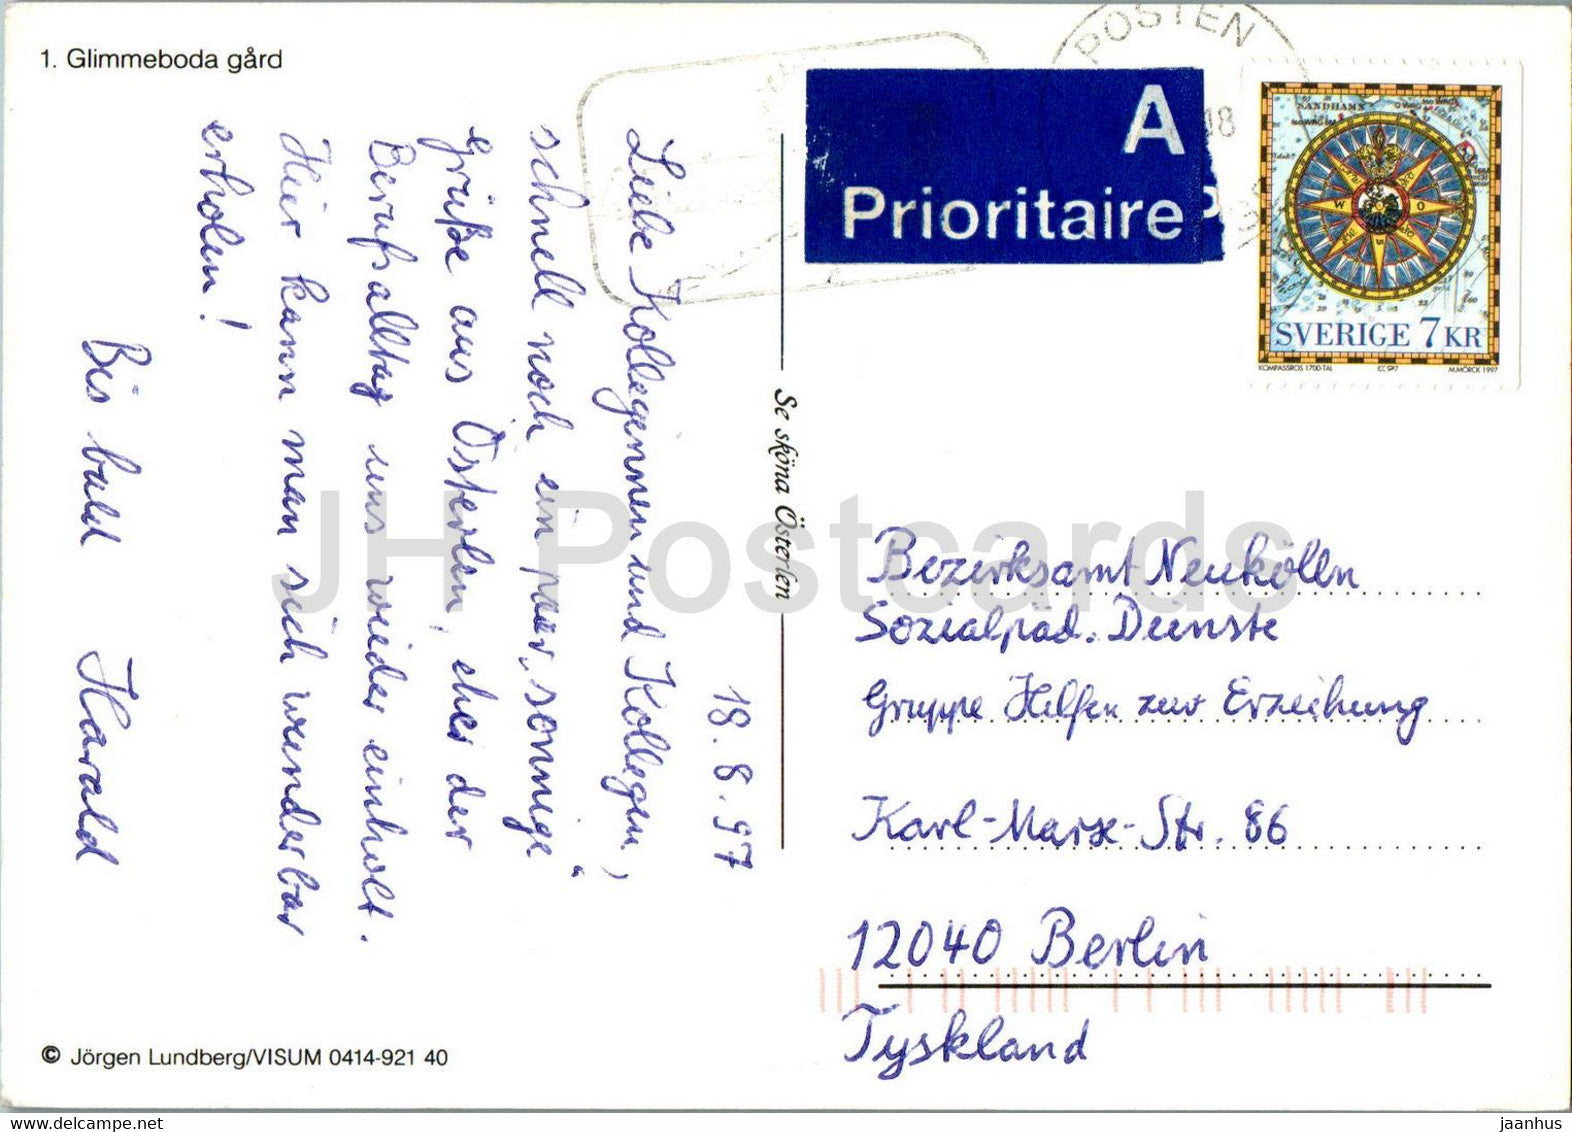 1. Glimmeboda gård
18.8.97
Liebe Kolleginnen und Kollegen,
schnell noch ein paar „sonnige“
Grüße aus Österlen, eher der
Berufsalltag uns wieder einholt.
Hier kann man sich wunderbar
erholen!
Bis bald Harald
© Jörgen Lundberg/VISUM 0414-921 40
Se sköna Österlen
POSTEN
18
A
Prioritaire
P
SANDHAMN
SVERIGE 7KR
KOMPASSROS 1700-TAL
M.MÖRCK 1997
Bezirksamt Neukölln
Sozialpäd. Dienste
Gruppe Hilfen zur Erziehung
Karl-Marx-Str. 86
12040 Berlin
Tyskland
JH Postcards
jaanhus